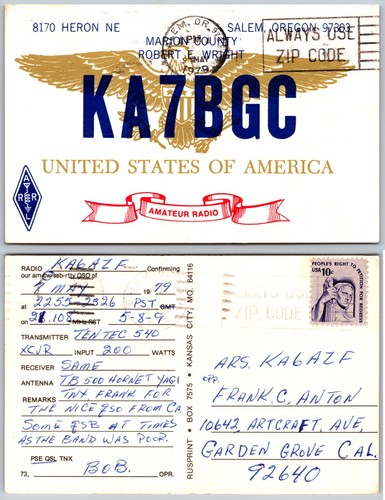 8170 HERON NE SALEM, OREGON 97303
MARION COUNTY
ROBERT E. WRIGHT
SALEM, OR.
PM
MAY
1979
ALWAYS USE
ZIP CODE
KA7BGC
UNITED STATES OF AMERICA
ARRL
AMATEUR RADIO
RADIO KA6AZF Confirming
our am-cw-ssb-rtty QSO of
7 MAY 1979
at 2255-2326 PST GMT
on 28.108 MHz RST 5-8-9
TRANSMITTER TEN TEC 540
XCVR INPUT 200 WATTS
RECEIVER SAME
ANTENNA TB 500 HORNET YAGI
REMARKS TNX FRANK FOR
THE NICE QSO FROM CA
SOME QSB AT TIMES
AS THE BAND WAS POOR.
PSE QSL TNX
73, BOB. OPR.
RUSPRINT • BOX 7575 • KANSAS CITY, MO. 64116
ZIP CODE
PEOPLE'S RIGHT TO PETITION FOR REDRESS
USA 10c
ARS. KA6AZF
OPR.
FRANK.C, ANTON
10642, ARTCRAFT, AVE,
GARDEN GROVE CAL.
92640